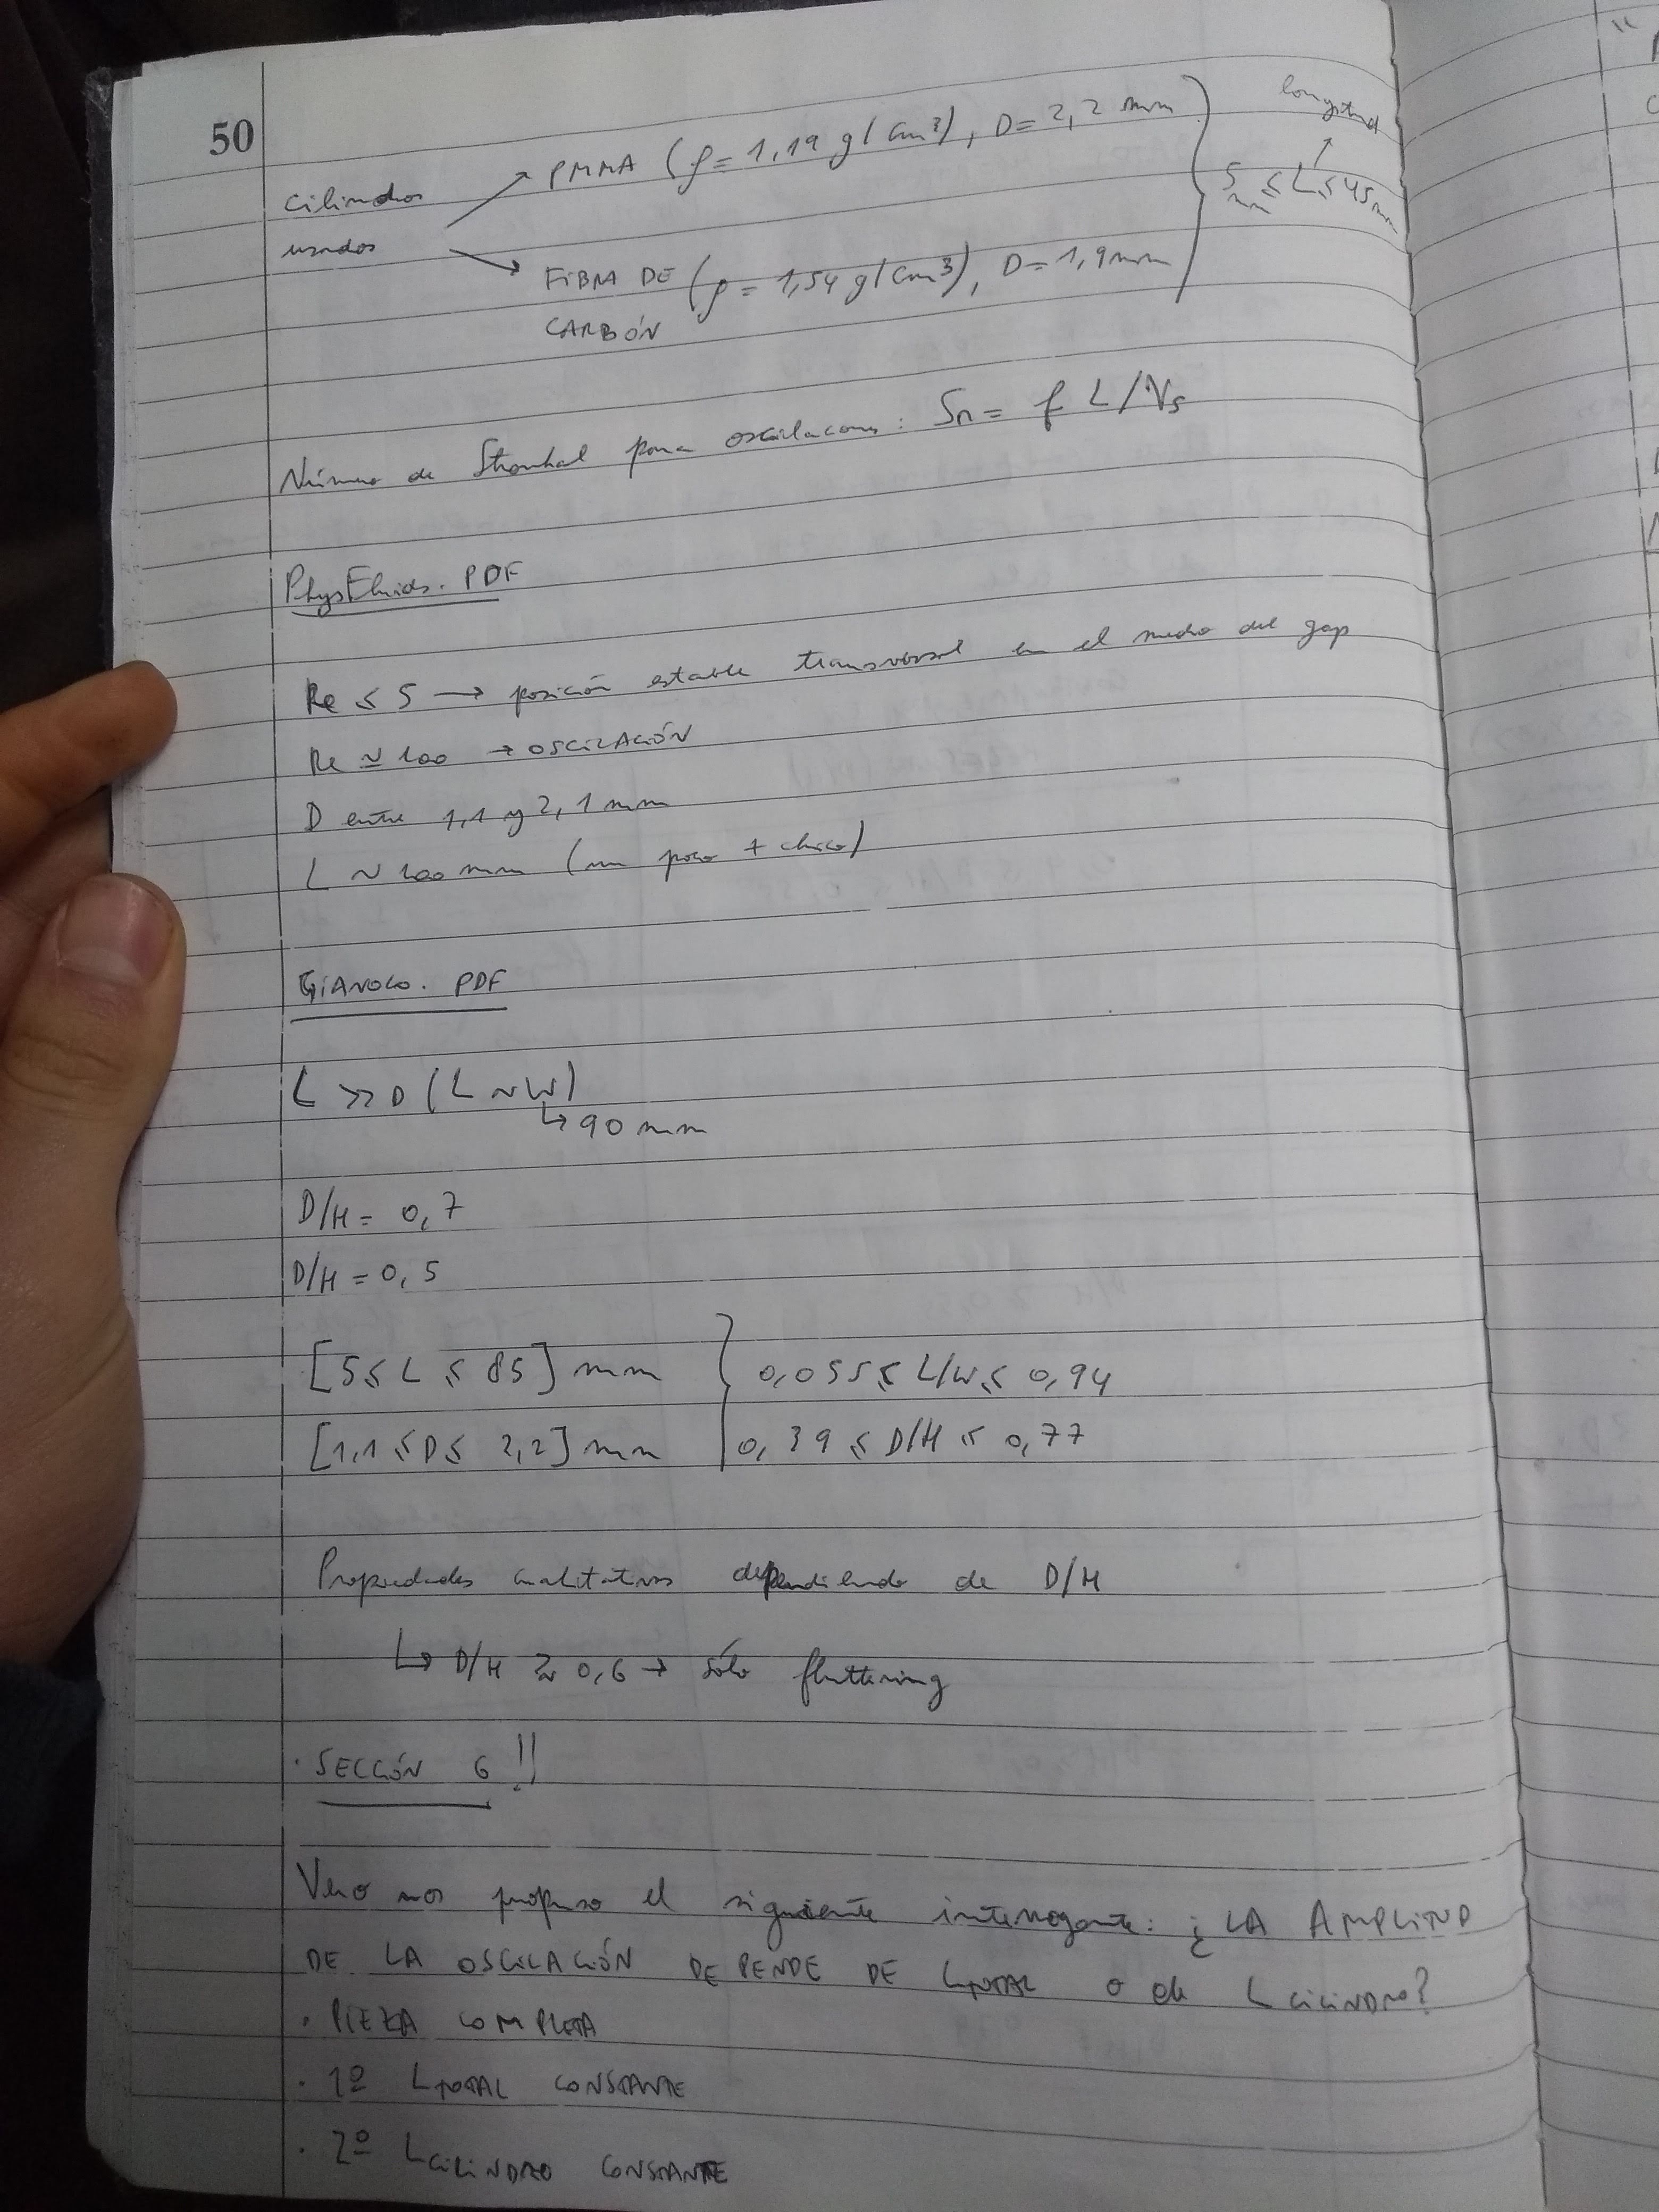 50
cilindros usados → PMMA (ρ = 1,19 g/cm³), D = 2,2 mm
→ FIBRA DE CARBÓN (ρ = 1,54 g/cm³), D = 1,9 mm
} 5 mm ≤ L ≤ 45 mm
longitud
Número de Strouhal para oscilaciones: Sn = f L/Vs
PhysFluids. PDF
Re ≤ 5 → posición estable transversal en el medio del gap
Re ≃ 100 → OSCILACIÓN
D entre 1,1 y 2,1 mm
L ~ 100 mm (un poco + chico)
GIANOCO. PDF
L >> D (L ~ W)
↳ 90 mm
D/H = 0,7
D/H = 0,5
[5 ≤ L ≤ 85] mm } 0,055 ≤ L/W ≤ 0,94
[1,1 ≤ D ≤ 2,2] mm } 0,39 ≤ D/H ≤ 0,77
Propiedades cualitativas dependiendo de D/H
↳ D/H ≳ 0,6 → sólo fluttering
· SECCIÓN 6 !!
Vero nos propuso el siguiente interrogante: ¿LA AMPLITUD
DE LA OSCILACIÓN DEPENDE DE L TOTAL o de L CILINDRO?
· PIEZA COMPLETA
· 1º L TOTAL CONSTANTE
· 2º L CILINDRO CONSTANTE